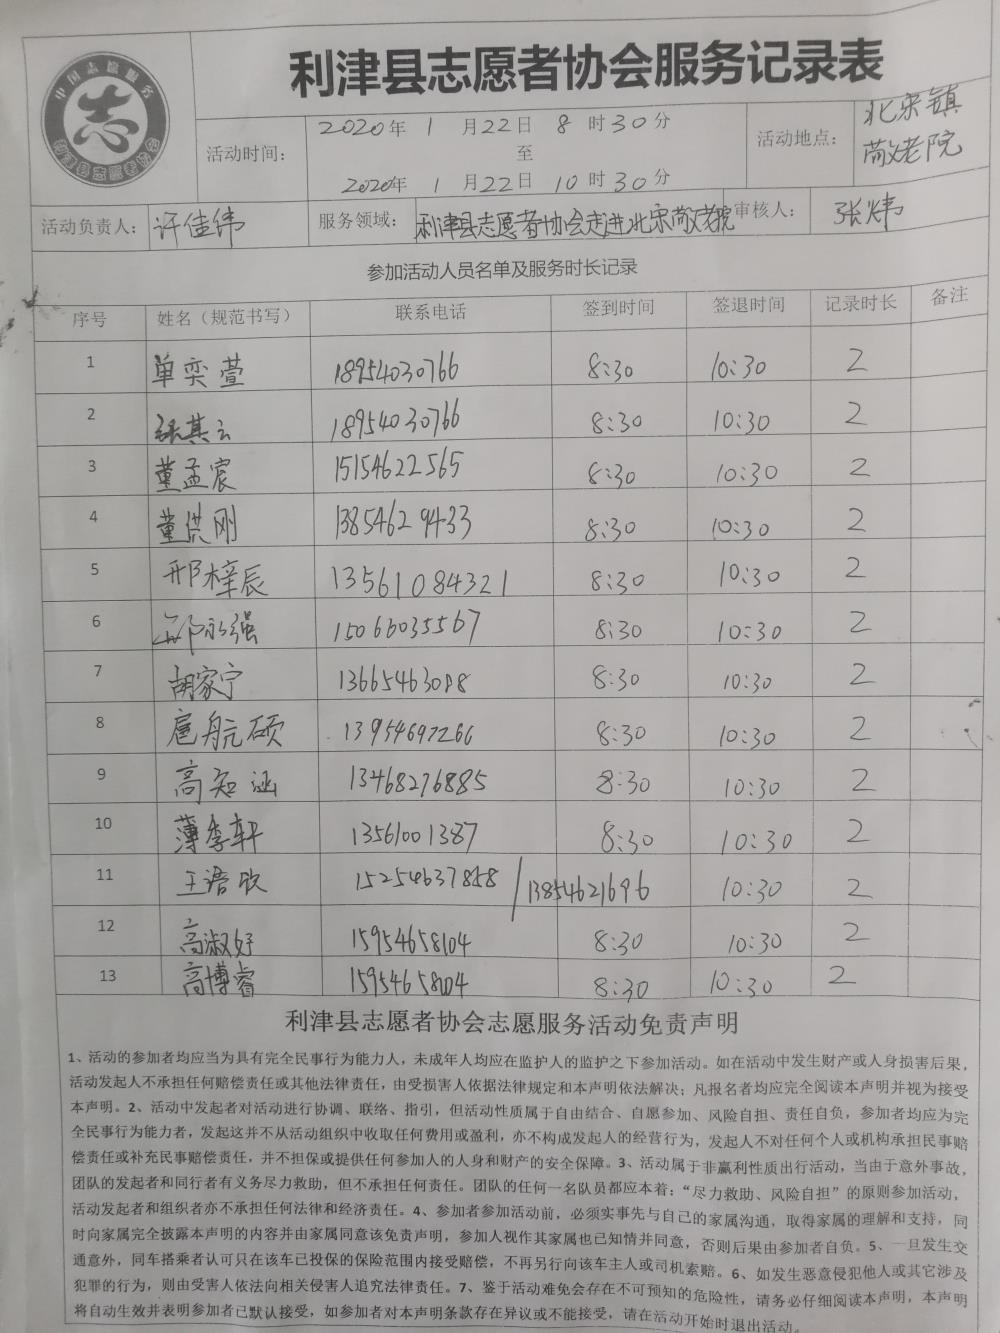 中国志愿服务
志
利津县志愿者协会
利津县志愿者协会服务记录表
活动时间：
2020年 1 月22日 8 时30分
至
2020年 1 月22日 10时30分
活动地点：
北宋镇
敬老院
活动负责人： 许佳纬 服务领域： 利津县志愿者协会走进北宋敬老院 审核人： 张炜
参加活动人员名单及服务时长记录
序号 姓名（规范书写） 联系电话 签到时间 签退时间 记录时长 备注
1 单奕萱 18954030766 8:30 10:30 2
2 张其云 18954030766 8:30 10:30 2
3 董孟宸 15154622565 8:30 10:30 2
4 董洪刚 13854629433 8:30 10:30 2
5 邢梓辰 13561084321 8:30 10:30 2
6 邢永强 15066035567 8:30 10:30 2
7 胡家宁 13665463088 8:30 10:30 2
8 扈航硕 13954697266 8:30 10:30 2
9 高知涵 13468276885 8:30 10:30 2
10 薄李轩 13561001387 8:30 10:30 2
11 王语欣 15254637858 / 13854621696 10:30 2
12 高淑好 15954658104 8:30 10:30 2
13 高博睿 15954658104 8:30 10:30 2
利津县志愿者协会志愿服务活动免责声明
1、活动的参加者均应当为具有完全民事行为能力人，未成年人均应在监护人的监护之下参加活动。如在活动中发生财产或人身损害后果，
活动发起人不承担任何赔偿责任或其他法律责任，由受损害人依据法律规定和本声明依法解决；凡报名者均应完全阅读本声明并视为接受
本声明。2、活动中发起者对活动进行协调、联络、指引，但活动性质属于自由结合、自愿参加、风险自担、责任自负，参加者均应为完
全民事行为能力者，发起这并不从活动组织中收取任何费用或盈利，亦不构成发起人的经营行为，发起人不对任何个人或机构承担民事赔
偿责任或补充民事赔偿责任，并不担保或提供任何参加人的人身和财产的安全保障。3、活动属于非赢利性质出行活动，当由于意外事故，
团队的发起者和同行者有义务尽力救助，但不承担任何责任。团队的任何一名队员都应本着：“尽力救助、风险自担”的原则参加活动，
活动发起者和组织者亦不承担任何法律和经济责任。4、参加者参加活动前，必须实事先与自己的家属沟通，取得家属的理解和支持，同
时向家属完全披露本声明的内容并由家属同意该免责声明，参加人视作其家属也已知情并同意，否则后果由参加者自负。5、一旦发生交
通意外，同车搭乘者认可只在该车已投保的保险范围内接受赔偿，不再另行向该车主人或司机索赔。6、如发生恶意侵犯他人或其它涉及
犯罪的行为，则由受害人依法向相关侵害人追究法律责任。7、鉴于活动难免会存在不可预知的危险性，请务必仔细阅读本声明，本声明
将自动生效并表明参加者已默认接受，如参加者对本声明条款存在异议或不能接受，请在活动开始时退出活动。